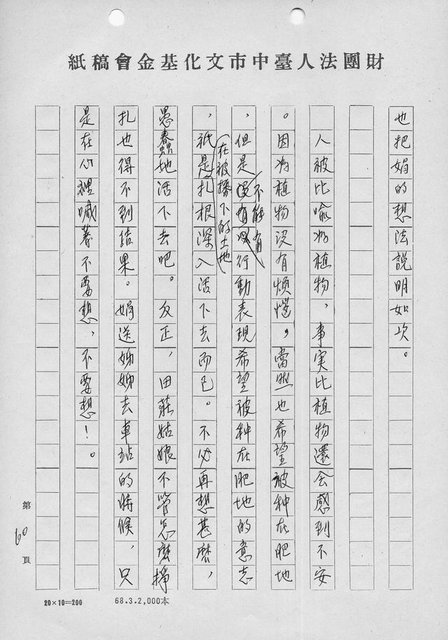 財團法人臺中市文化基金會稿紙
也把娟的想法說明如次。
人被比喻為植物，事实比植物還会感到不安
。因為植物沒有煩惱，當然也希望被种在肥地
，但是不能有行動表現希望被种在肥地的意志
，祇是在被播下的土地扎根深入活下去而已。不必再想甚麼，
愚蠢地活下去吧。反正，田莊姑娘不管怎麼掙
扎也得不到結果。娟送姊姊去車站的時候，只
是在心裡喊著不要想，不要想！。
第60頁
20×10=200
68.3.2,000本